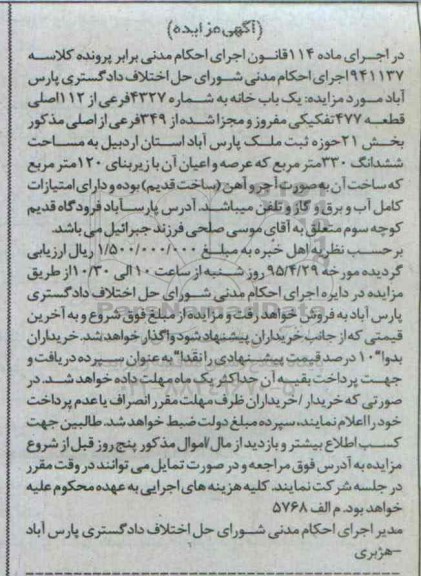 (آگهی مزایده)
در اجرای ماده ۱۱۴قانون اجرای احکام مدنی برابر پرونده کلاسه
۹۴۱۱۳۷اجرای احکام مدنی شورای حل اختلاف دادگستری پارس
آباد مورد مزایده: یک باب خانه به شماره ۴۳۲۷فرعی از ۱۱۲اصلی
قطعه ۴۷۷تفکیکی مفروز و مجزا شده از ۳۴۹فرعی از اصلی مذکور
بخش ۲۱حوزه ثبت ملک پارس آباد استان اردبیل به مساحت
ششدانگ ۳۳۰متر مربع که عرصه و اعیان آن با زیربنای ۱۲۰متر مربع
که ساخت آن به صورت آجر و آهن (ساخت قدیم) بوده و دارای امتیازات
کامل آب و برق و گاز و تلفن میباشد. آدرس پارس آباد فرودگاه قدیم
کوچه سوم متعلق به آقای موسی صلحی فرزند جبرائیل می باشد.
بر حسب نظریه اهل خبره به مبلغ ۱/۵۰۰/۰۰۰/۰۰۰ ریال ارزیابی
گردیده مورخه ۹۵/۴/۲۹ روز شنبه از ساعت ۱۰ الی ۱۰/۳۰ از طریق
مزایده در دایره اجرای احکام مدنی شورای حل اختلاف دادگستری
پارس آباد به فروش خواهد رفت و مزایده از مبلغ فوق شروع و به آخرین
قیمتی که از جانب خریداران پیشنهاد شود واگذار خواهد شد. خریداران
بدوا" ۱۰ درصد قیمت پیشنهادی را نقدا" به عنوان سپرده دریافت و
جهت پرداخت بقیه آن حداکثر یک ماه مهلت داده خواهد شد. در
صورتی که خریدار / خریداران ظرف مهلت مقرر انصراف یا عدم پرداخت
خود را اعلام نمایند، سپرده مبلغ دولت ضبط خواهد شد. طالبین جهت
کسب اطلاع بیشتر و بازدید از مال/اموال مذکور پنج روز قبل از شروع
مزایده به آدرس فوق مراجعه و در صورت تمایل می توانند در وقت مقرر
در جلسه شرکت نمایند. کلیه هزینه های اجرایی به عهده محکوم علیه
خواهد بود. م الف ۵۷۶۸
مدیر اجرای احکام مدنی شورای حل اختلاف دادگستری پارس آباد
-هژبری